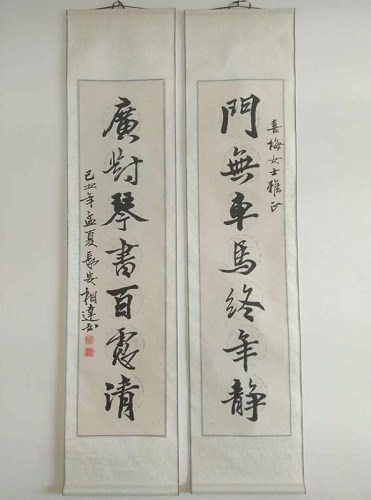 喜梅女士雅正
門無車馬終年静
廣對琴書百慮清
己丑年孟夏長安相達书